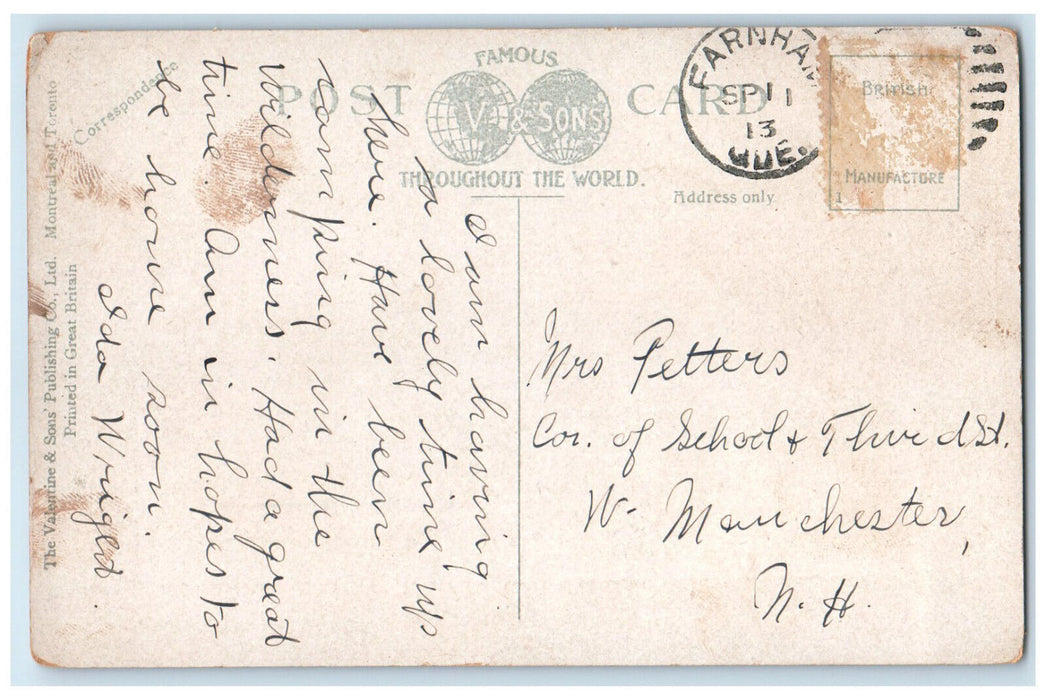 FAMOUS
POST CARD
V. & SONS
THROUGHOUT THE WORLD.
Correspondence
Address only
FARNHAM
SP 11
13
QUE.
BRITISH
MANUFACTURE
1
The Valentine & Sons' Publishing Co., Ltd. Montreal and Toronto
Printed in Great Britain
I am having
a lovely time up
here. Have been
camping in the
wilderness. Had a great
time. Am in hopes to
be home soon.
Ida Wright.
Mrs Petters
Cor. of School & Third St.
W. Manchester,
N.H.